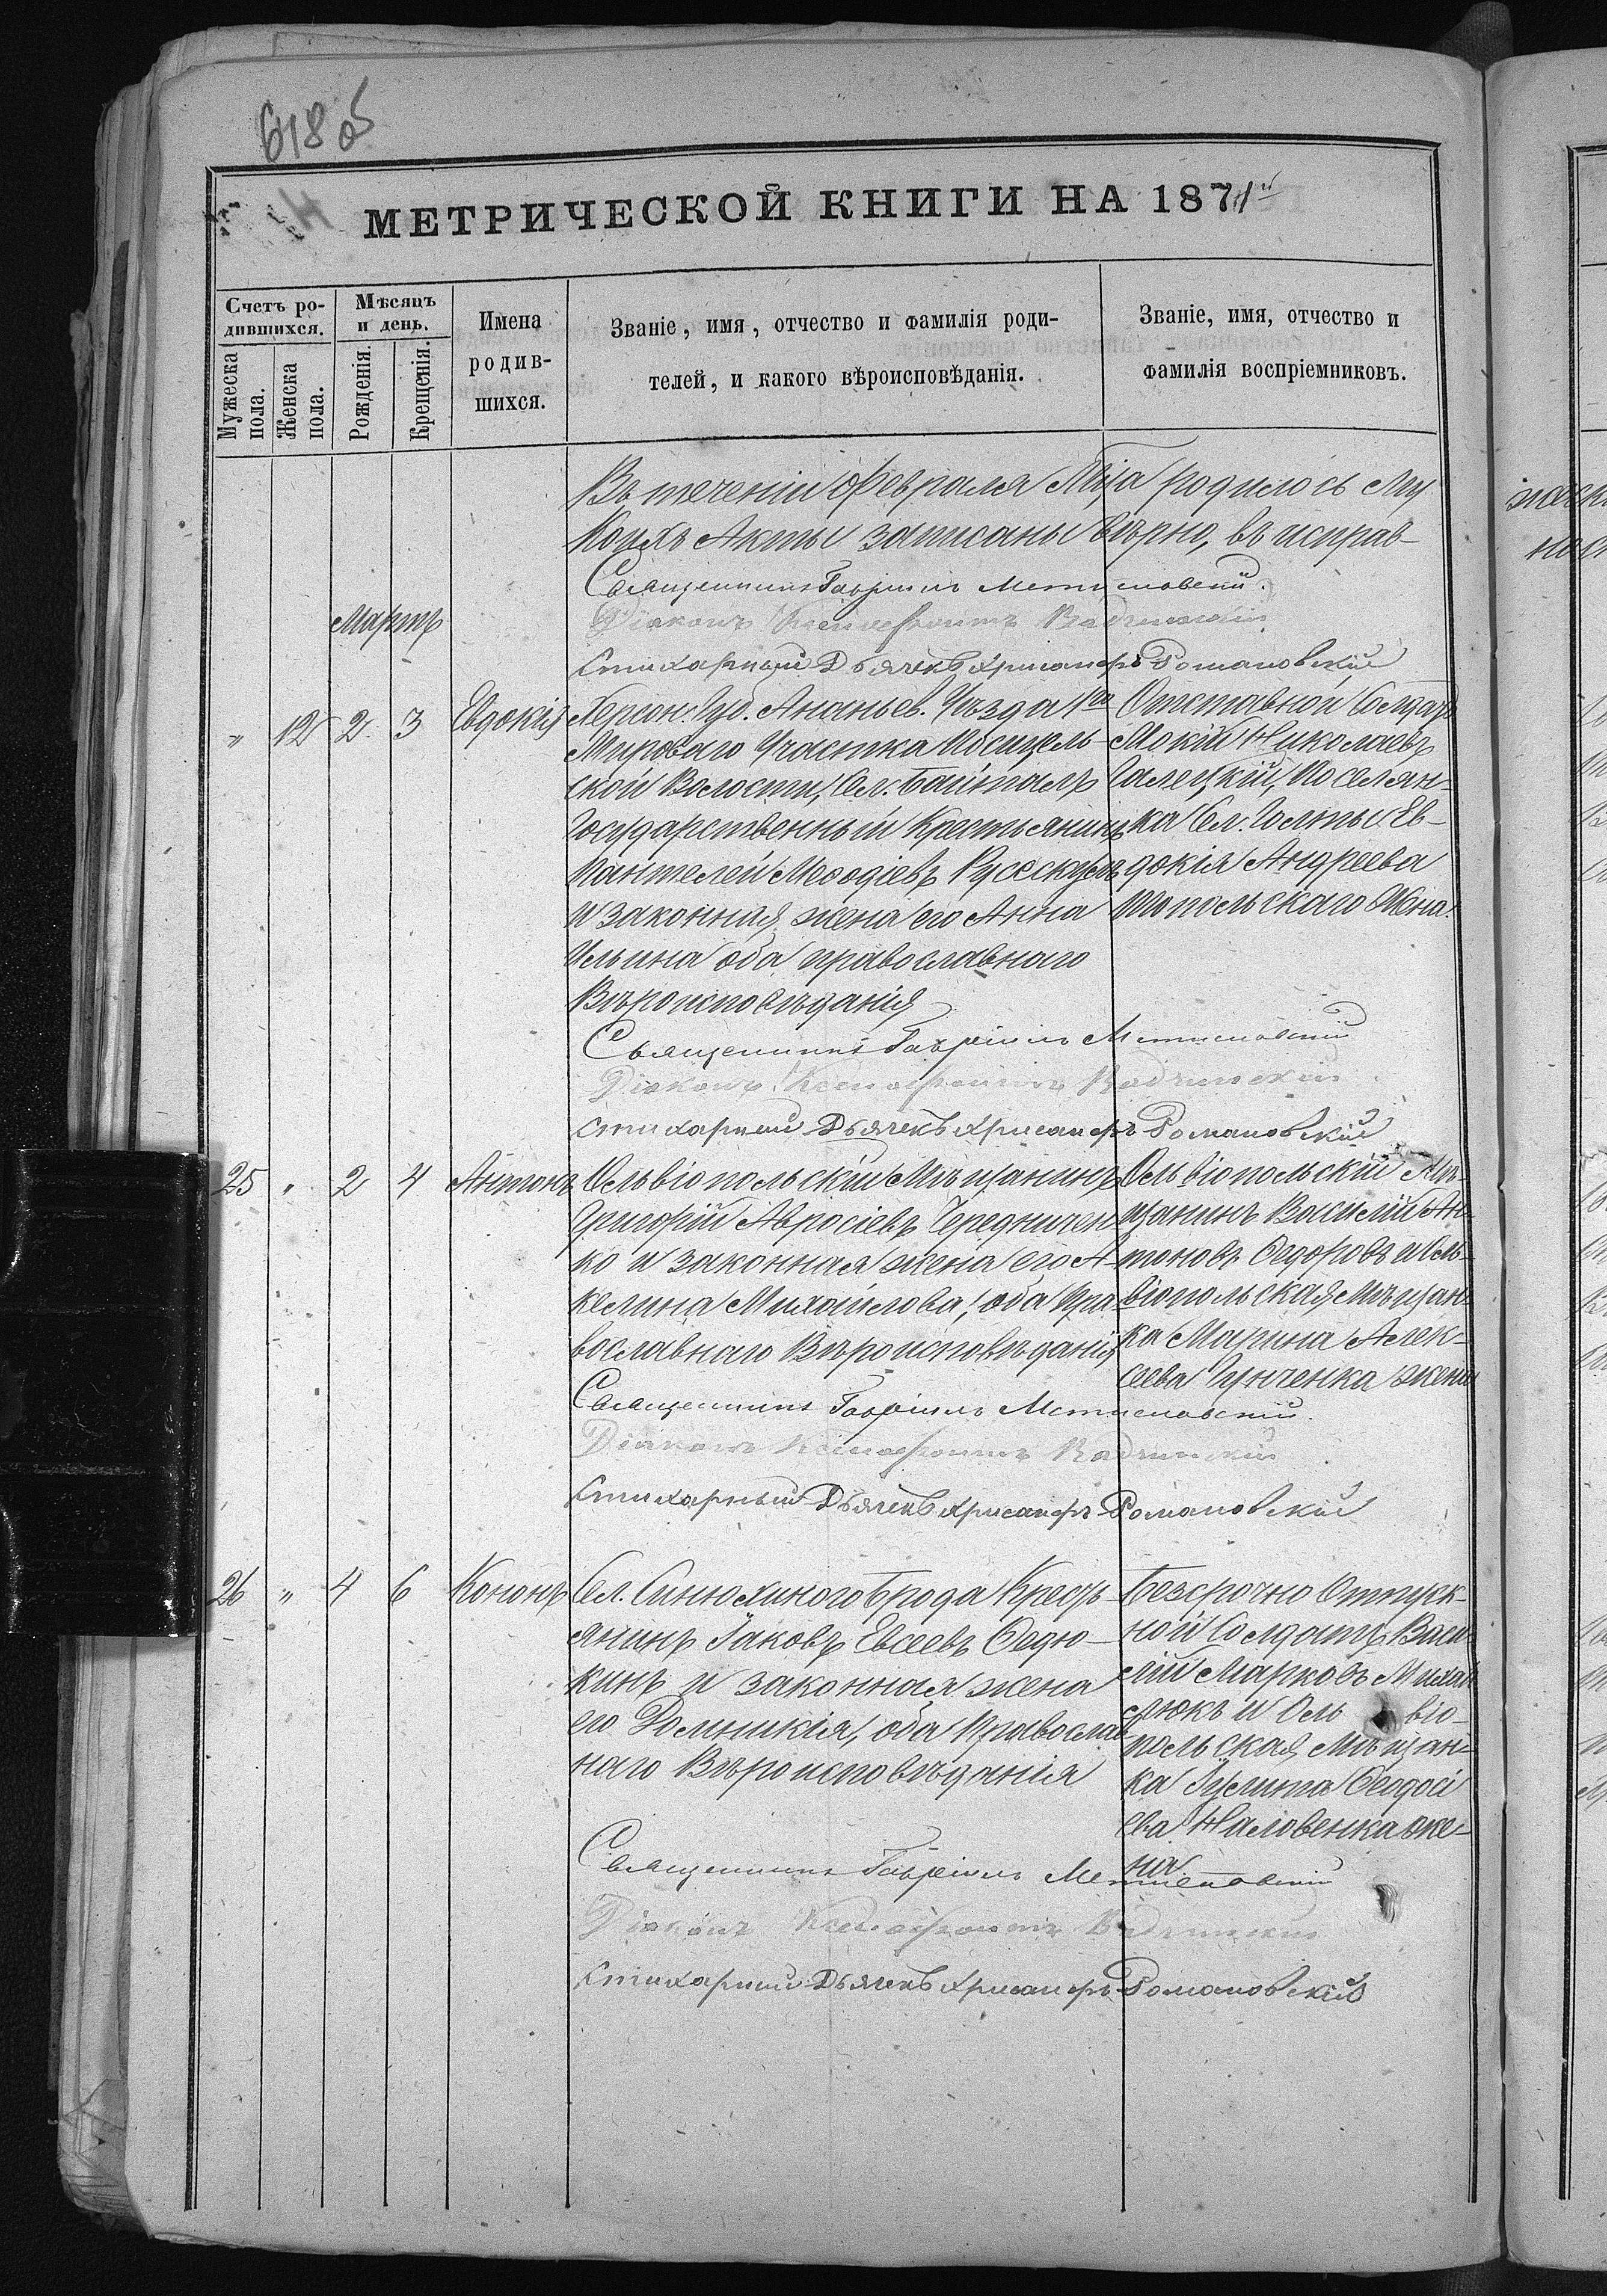 618 об
МЕТРИЧЕСКОЙ КНИГИ НА 1871й
Счетъ ро-
дившихся.
Мужеска пола.
Женска пола.
Мѣсяцъ
и день.
Рожденія.
Крещенія.
Имена
родив-
шихся.
Званіе, имя, отчество и фамилія роди-
телей, и какого вѣроисповѣданія.
Званіе, имя, отчество и
фамилія воспріемниковъ.
Въ теченіи Февраля Мца родилось Му
Коихъ Акты записаны вѣрно, въ исправ-
Священникъ Гавріилъ Мстиславскій.
Діаконъ Ксенофонтъ
Стихарный Дьячекъ Хрисанфъ Романовскій
Мартъ
" 12 2 3 Евдокія
Херсон. Губ. Ананьев. Уѣзда 1го
Мироваго Участка
ской Волости, Сел. Байталъ
Государственный Крестьянинъ
Пантелей Меѳодіевъ
и законная жена его Анна
Ильина оба православнаго
Вѣроисповѣданія
Отставной Солдатъ
Мокій Николаевъ
Галецкій, Поселян-
ка Сел. Голты Ев-
докія Андреева
Шопольскаго Жена.
Священникъ Гавріилъ Мстиславскій
Діаконъ Ксенофонтъ
Стихарный Дьячекъ Хрисанфъ Романовскій
25 " 2 4 Антонъ
Ольвіопольскій Мѣщанинъ
Григорій Авросіевъ Чередничен-
ко и законная жена его А-
келина Михайлова, оба Пра-
вославнаго Вѣроисповѣданія
Ольвіопольскій Мѣ-
щанинъ Василій Ан-
тоновъ Ѳедоровъ и Оль-
віопольская Мѣщан-
ка Марина Алек-
сеева Гунченка жена
Священникъ Гавріилъ Мстиславскій.
Діаконъ Ксенофонтъ
Стихарный Дьячекъ Хрисанфъ Романовскій
26 " 4 6 Кононъ
Сел. Синюхиного Брода Кресть-
янинъ Іаковъ Евсеевъ Ѳедю-
кинъ и законная жена
его Домникія, оба Православ
наго Вѣроисповѣданія
Безсрочно Отпуск-
ной Солдатъ Васи-
лій Марковъ Михай
люкъ и Оль віо-
польская Мѣщан-
ка Іулита Ѳеодосі
ева Наловенка же-
на.
Священникъ Гавріилъ Мстиславскій
Діаконъ Ксенофонтъ
Стихарный Дьячекъ Хрисанфъ Романовскій